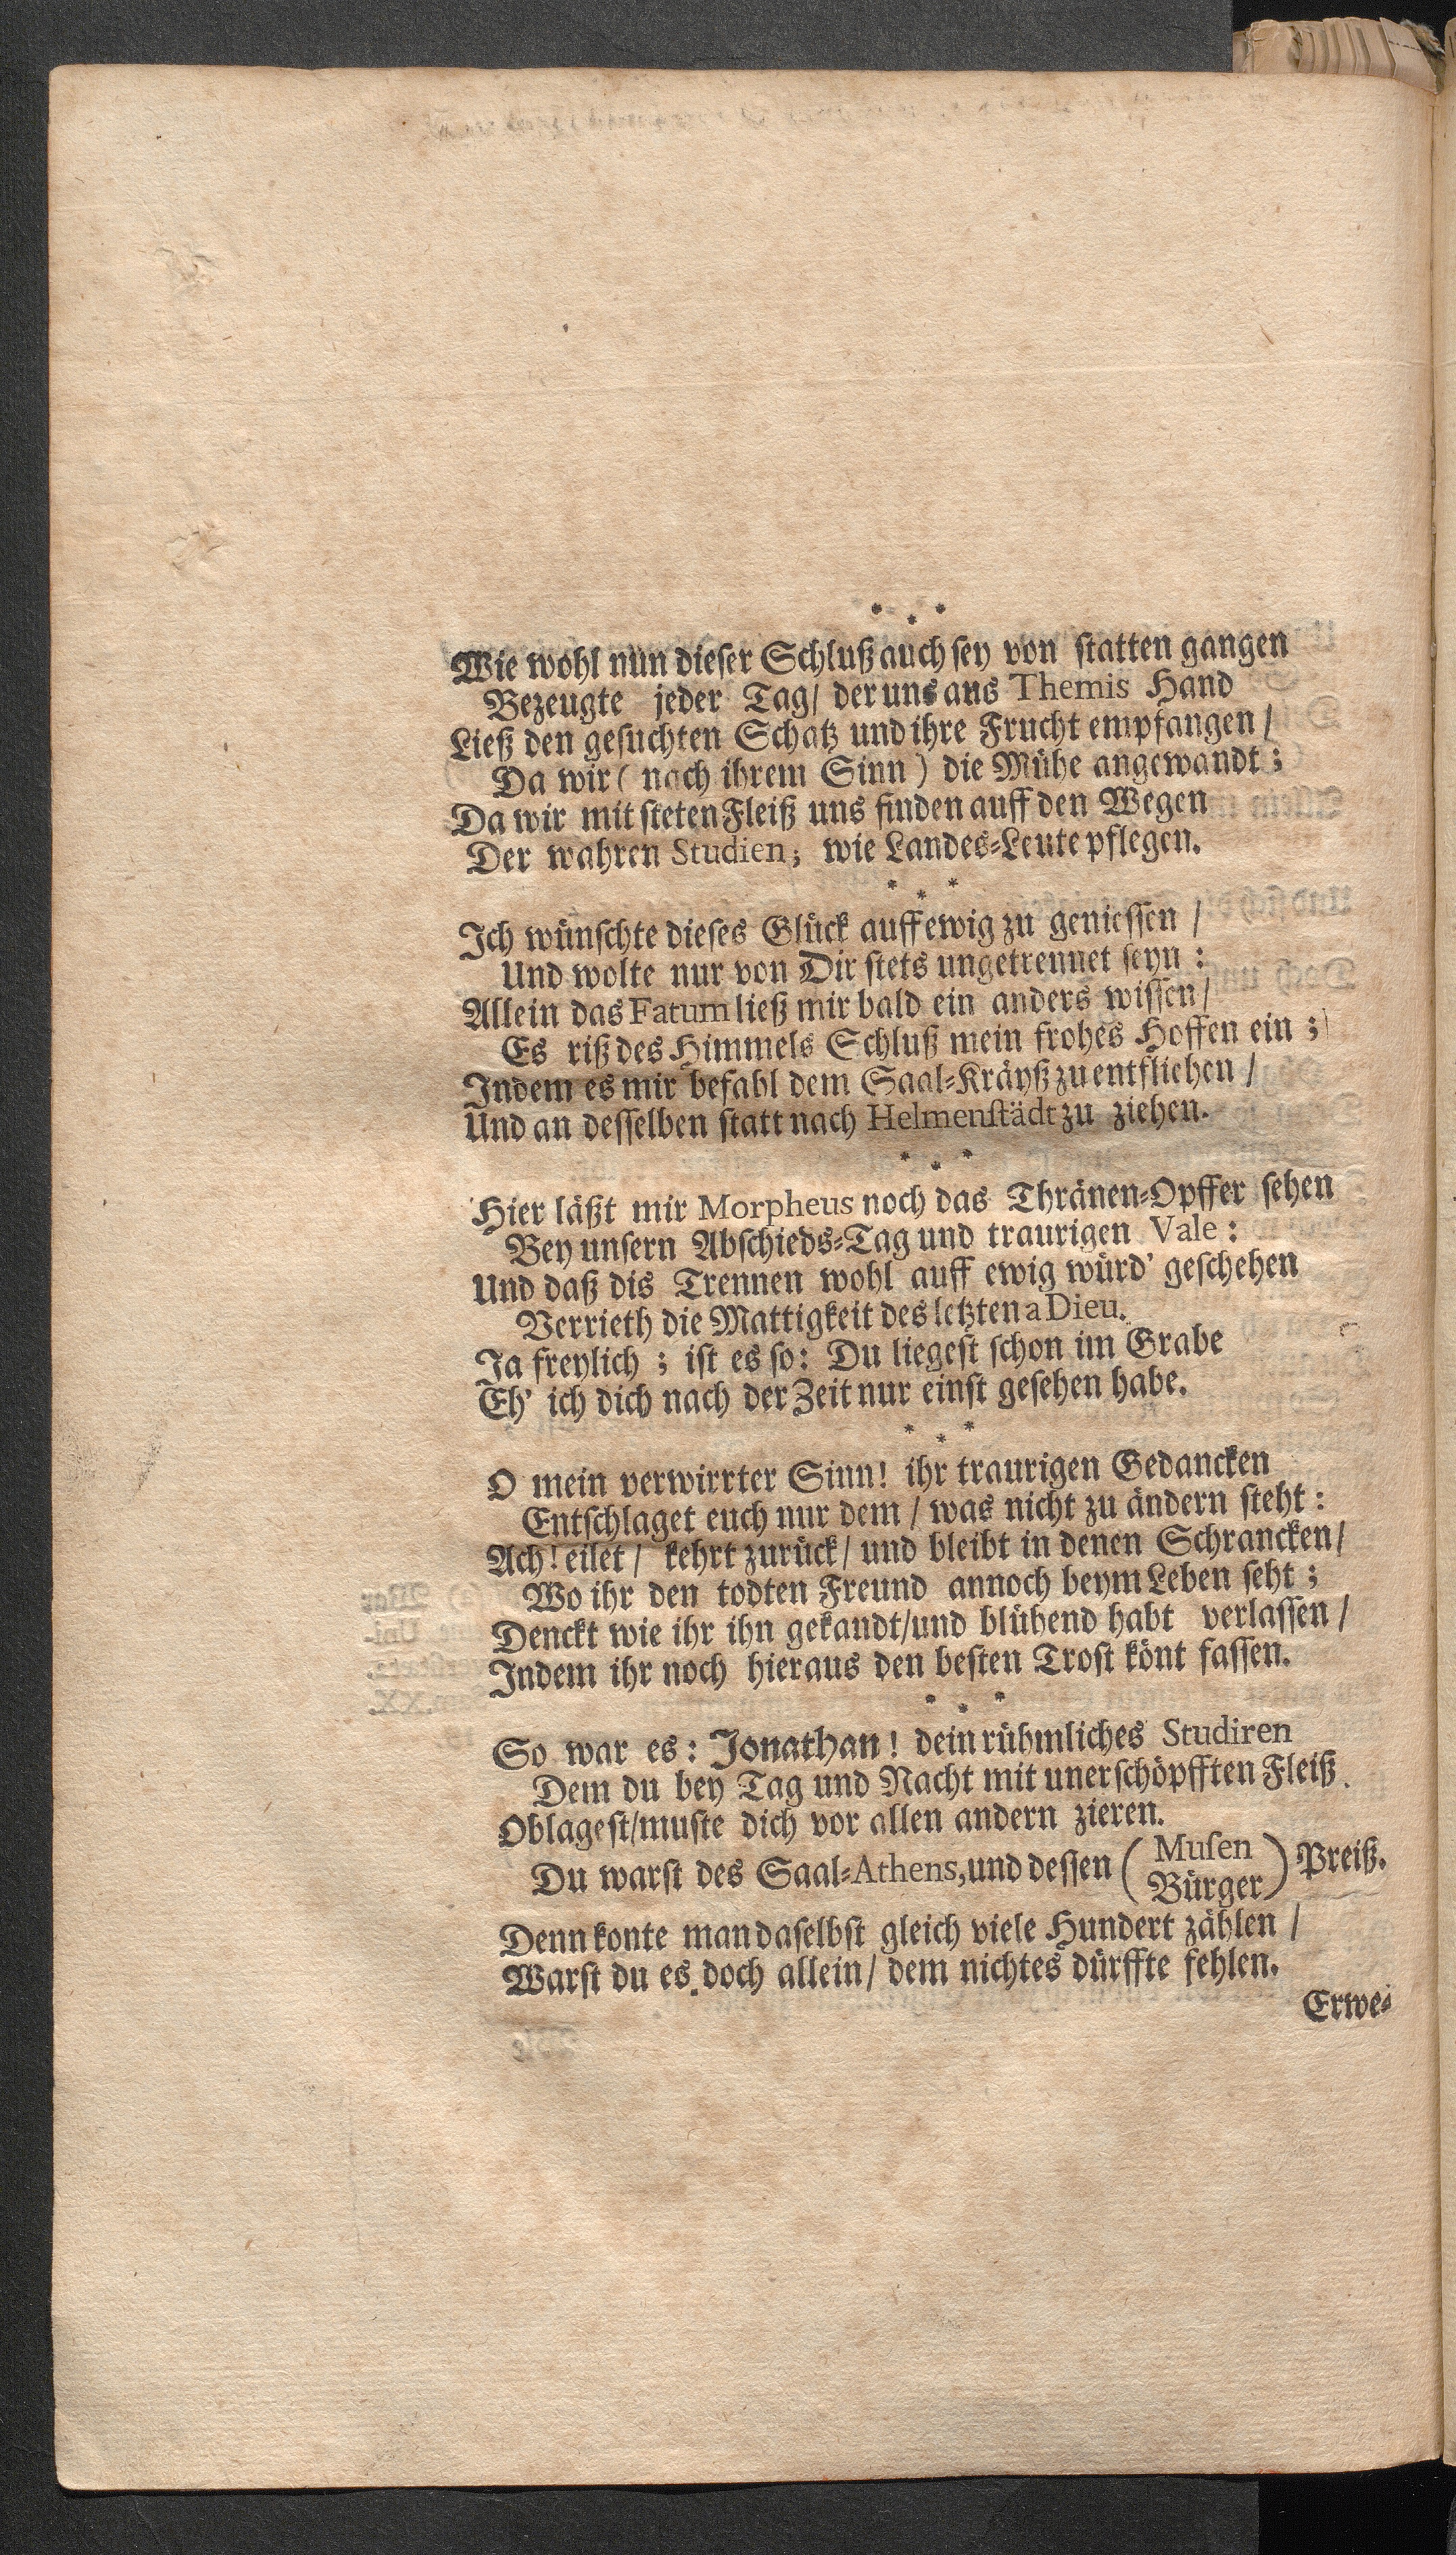 * * *
Wie wohl nun dieser Schluß auch sey von statten gangen
Bezeugte jeder Tag/ der uns aus Themis Hand
Ließ den gesuchten Schatz und ihre Frucht empfangen/
Da wir ( nach ihrem Sinn ) die Mühe angewandt;
Da wir mit steten Fleiß uns finden auff den Wegen
Der wahren Studien; wie Landes-Leute pflegen.
* * *
Ich wünschte dieses Glück auff ewig zu geniessen /
Und wolte nur von Dir stets ungetrennet seyn:
Allein das Fatum ließ mir bald ein anders wissen/
Es riß des Himmels Schluß mein frohes Hoffen ein;
Indem es mir befahl dem Saal-Kräyß zu entfliehen /
Und an desselben statt nach Helmenstädt zu ziehen.
* * *
Hier läßt mir Morpheus noch das Thränen-Opffer sehen
Bey unsern Abschieds-Tag und traurigen Vale:
Und daß dis Trennen wohl auff ewig würd' geschehen
Verrieth die Mattigkeit des letzten a Dieu.
Ja freylich; ist es so: Du liegest schon im Grabe
Eh' ich dich nach der Zeit nur einst gesehen habe.
* * *
O mein verwirrter Sinn! ihr traurigen Gedancken
Entschlaget euch nur dem / was nicht zu ändern steht:
Ach! eilet / kehrt zurück / und bleibt in denen Schrancken/
Wo ihr den todten Freund annoch beym Leben seht;
Denckt wie ihr ihn gekandt/und blühend habt verlassen /
Indem ihr noch hieraus den besten Trost könt fassen.
* * *
So war es: Jonathan! dein rühmliches Studiren
Dem du bey Tag und Nacht mit unerschöpfften Fleiß.
Oblagest/muste dich vor allen andern zieren.
Du warst des Saal-Athens, und dessen ( Musen
Bürger ) Preiß.
Denn konte man daselbst gleich viele Hundert zählen /
Warst du es doch allein/ dem nichtes dürffte fehlen.
Erwe-